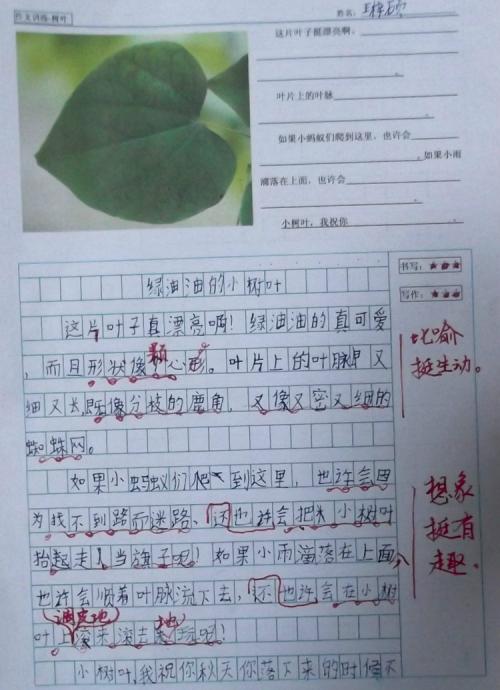 作文训练-树叶
姓名:
这片叶子挺漂亮啊,
。
叶片上的叶脉
。
如果小蚂蚁们爬到这里,也许会
,如果小雨
滴落在上面,也许会
。
小树叶,我祝你
。
绿油油的小树叶
书写:★★★
写作:★★★
这片叶子真漂亮啊!绿油油的真可爱
,而且形状像颗心形。叶片上的叶脉又
细又长,既像分枝的鹿角,又像又密又细的
蜘蛛网。
比喻
挺生动。
如果小蚂蚁们爬到这里,也许会因
为找不到路而迷路,还也许会把小树叶
抬起走!当旗子呢!如果小雨滴落在上面,
也许会顺着叶脉流下去,还也许会在小树
调皮地 地
叶上滚来滚去玩呢!
想象
挺有
趣。
小树叶,我祝你秋天你落下来的时候不